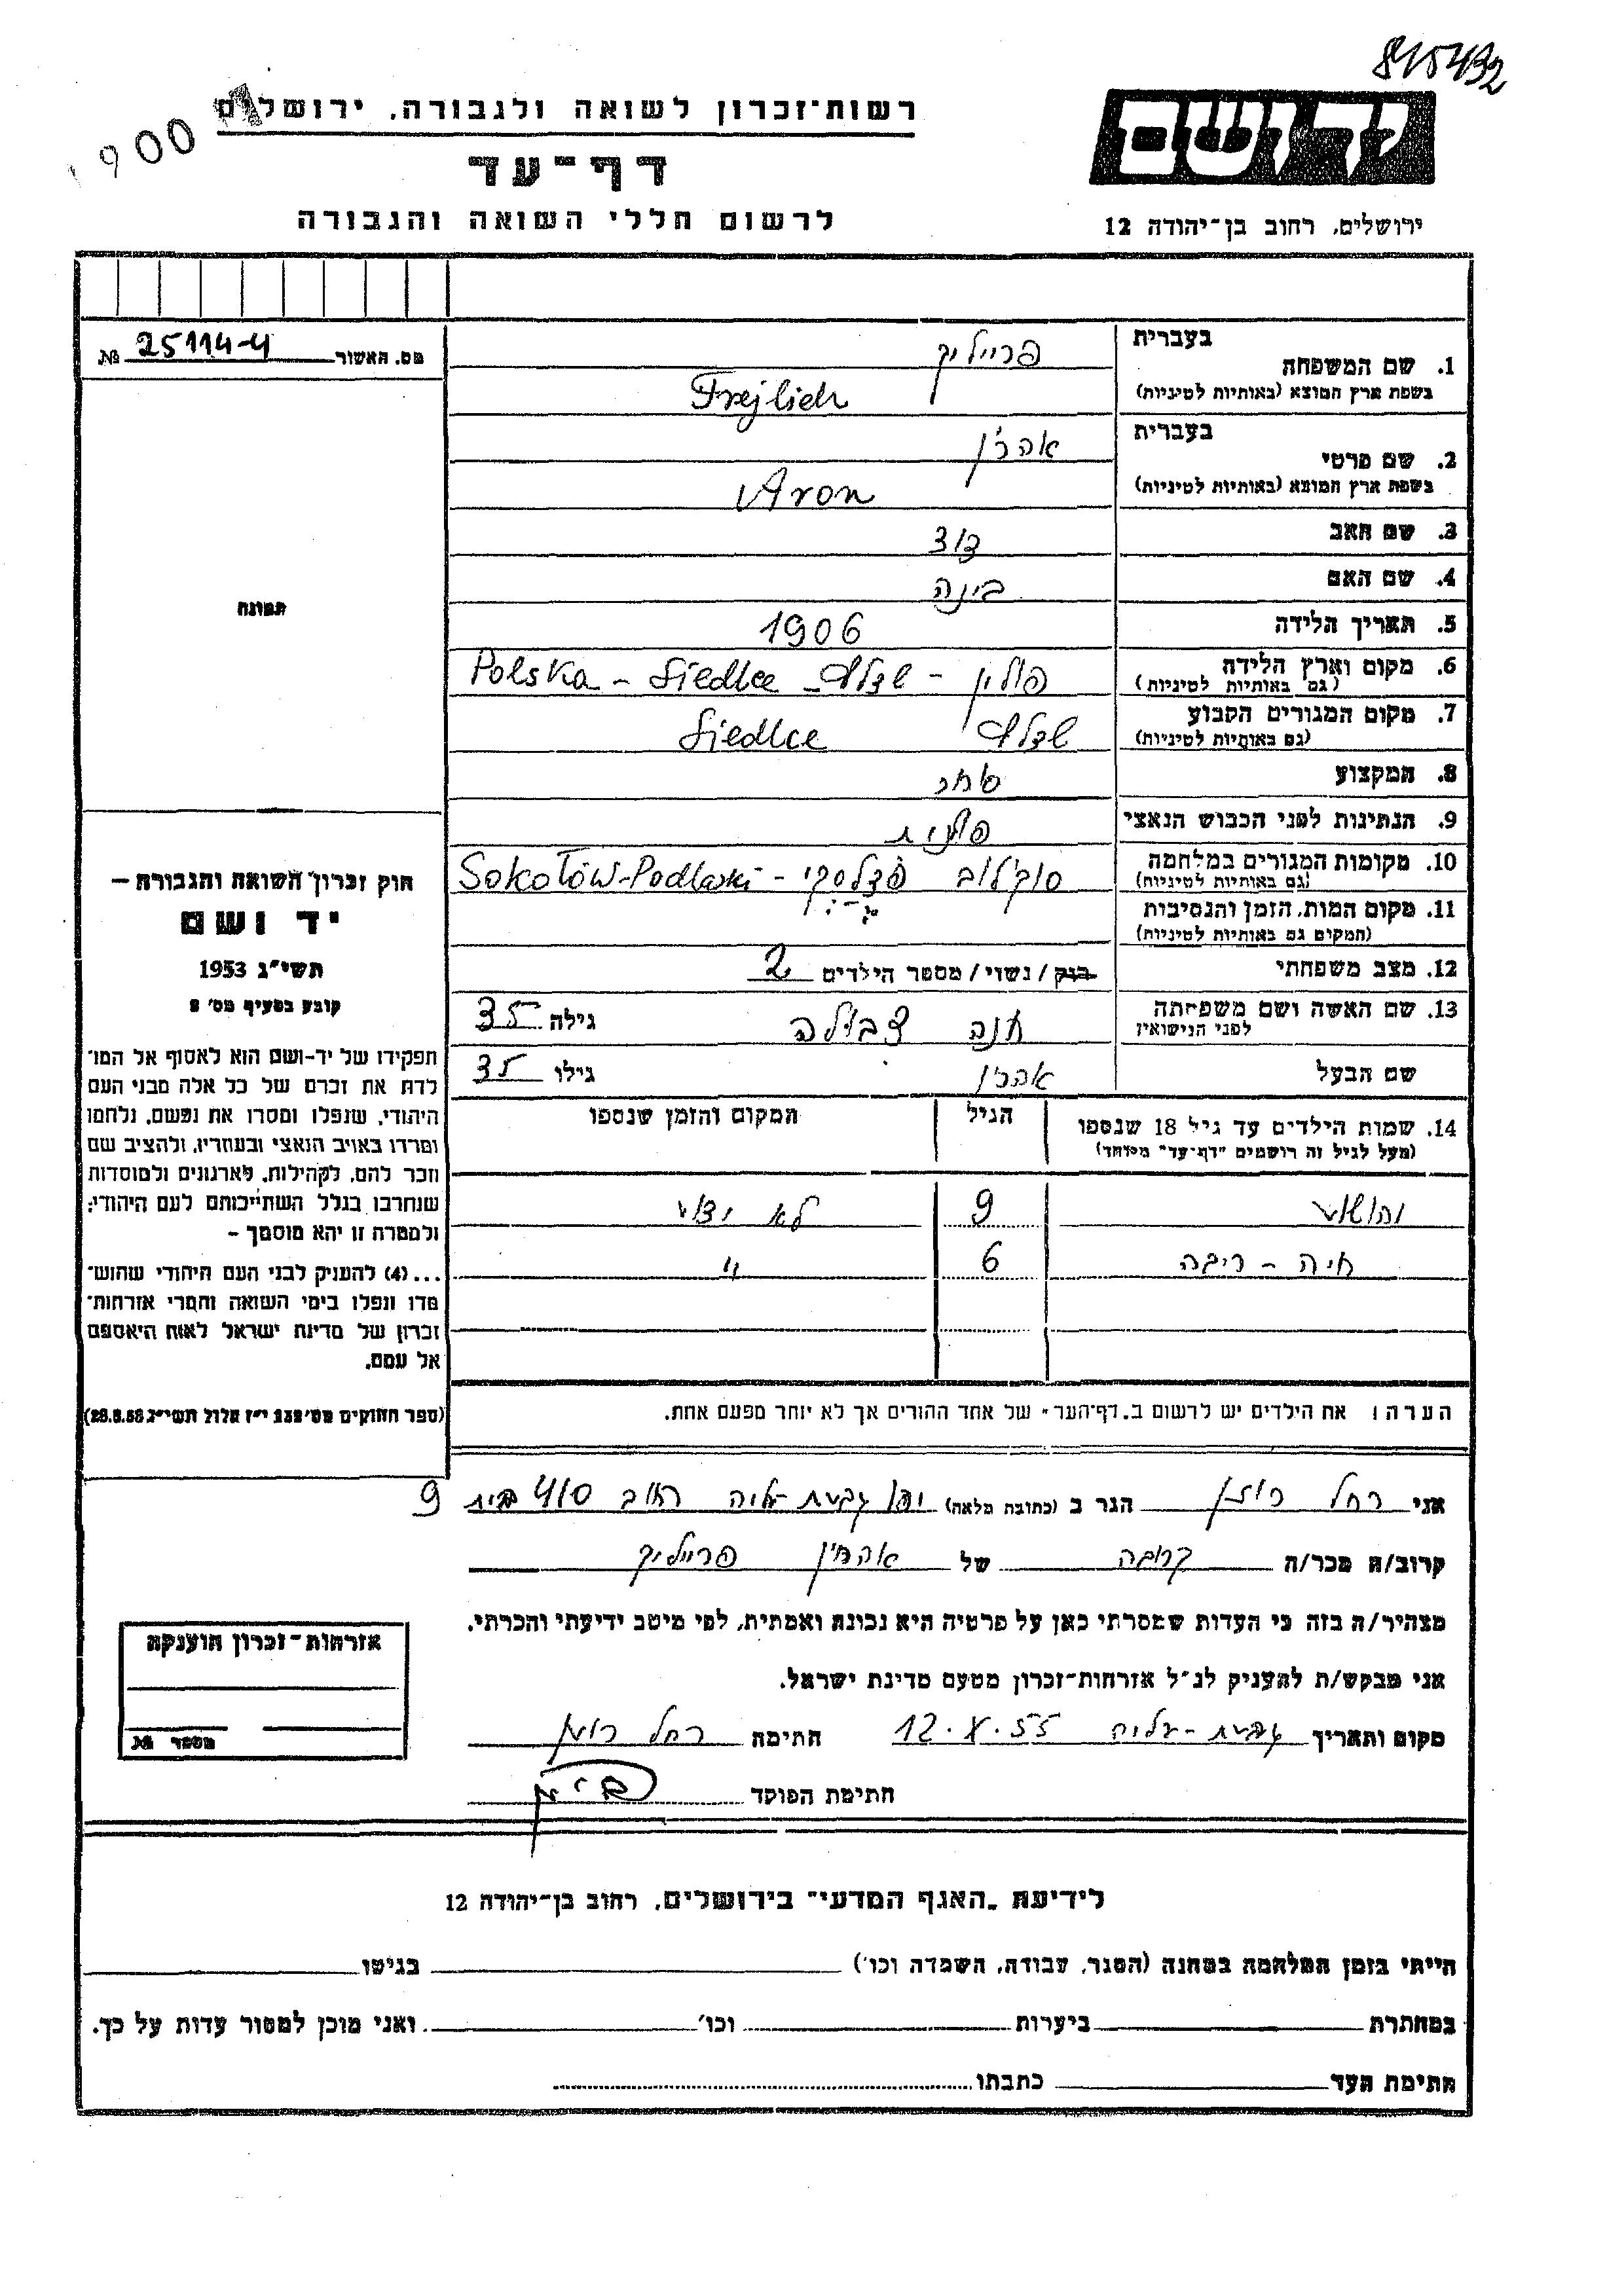 815492
900
רשות־זכרון לשואה ולגבורה, ירושלים
דף־עד
לרשום חללי השואה והגבורה
יד ושם
ירושלים, רחוב בן־יהודה 12
מס. האשור 25114-4 №
תמונה
חוק זכרון השואה והגבורה —
יד ושם
תשי״ג 1953
קובע בסעיף מס׳ 2
תפקידו של יד-ושם הוא לאסוף אל המו־
לדת את זכרם של כל אלה מבני העם
היהודי, שנפלו ומסרו את נפשם, נלחמו
ומרדו באויב הנאצי ובעוזריו, ולהציב שם
וזכר להם, לקהילות, לארגונים ולמוסדות
שנחרבו בגלל השתייכותם לעם היהודי;
ולמטרה זו יהא מוסמך –
...(4) להעניק לבני העם היהודי שהוש־
מדו ונפלו בימי השואה והמרי אזרחות־
זכרון של מדינת ישראל לאות היאספם
אל עמם.
(ספר החוקים מס׳ 132 י״ז אלול תשי״ג 28.8.53)
1. שם המשפחה בעברית פרייליך
בשפת ארץ המוצא (באותיות לטיניות) Frejlich
2. שם פרטי בעברית אהרן
בשפת ארץ המוצא (באותיות לטיניות) Aron
3. שם האב דוד
4. שם האם בינה
5. תאריך הלידה 1906
6. מקום וארץ הלידה (גם באותיות לטיניות) פולין - שדלץ - Polska - Siedlce
7. מקום המגורים הקבוע (גם באותיות לטיניות) שדלץ Siedlce
8. המקצוע סוחר
9. הנתינות לפני הכבוש הנאצי פולנית
10. מקומות המגורים במלחמה (גם באותיות לטיניות) סוקולוב פודלסקי - Sokołów-Podlaski
11. מקום המות, הזמן והנסיבות
(המקום גם באותיות לטיניות)
12. מצב משפחתי רווק / נשוי / מספר הילדים 2
13. שם האשה ושם משפחתה לפני הנישואין חנה גילה 35
שם הבעל אהרן גילו 35
14. שמות הילדים עד גיל 18 שנספו הגיל המקום והזמן שנספו
(מעל לגיל זה רושמים ״דף-עד״ מיוחד)
יהושע 9 לא ידוע
חיה - ריבה 6 "
הערה: את הילדים יש לרשום ב„דף־העד״ של אחד ההורים אך לא יותר מפעם אחת.
אני רחל רוזן הגר ב (כתובת מלאה) גבעת-עליה רחוב 410 בית 9
קרוב/ה מכר/ה קרובה של אהרן פרייליך
מצהיר/ה בזה כי העדות שמסרתי כאן על פרטיה היא נכונה ואמתית, לפי מיטב ידיעתי והכרתי.
אני מבקש/ת להעניק לנ״ל אזרחות־זכרון מטעם מדינת ישראל.
מקום ותאריך גבעת-עליה 12.X.55 חתימה רחל רוזן
חתימת הפוקד
אזרחות־זכרון הוענקה
מספר №
לידיעת „האגף המדעי״ בירושלים, רחוב בן־יהודה 12
הייתי בזמן המלחמה במחנה (הסגר, עבודה, השמדה וכו׳) בגיטו
במחתרת ביערות וכו׳ ואני מוכן למסור עדות על כך.
חתימת העד כתבתו